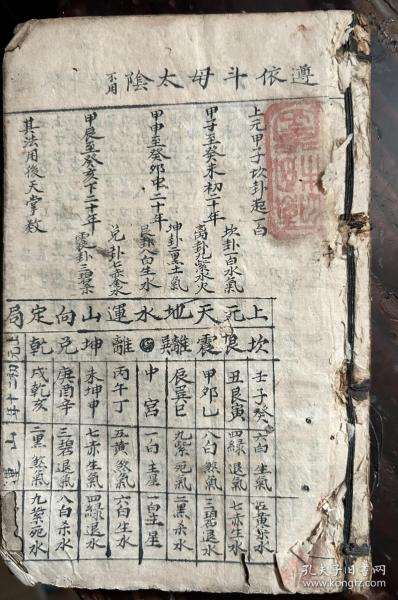 遵依斗母太陰不用
上元甲子坎卦起一白
甲子至癸未初二十年
坎卦一白水氣
离卦九紫水火
甲申至癸卯中二十年
坤卦二黑土氣
艮卦八白生水
甲辰至癸亥下二十年
兑卦七赤金水
震卦三碧
其法用後天掌数
上元天地水運山向定局
坎艮震離坤兑乾
壬子癸 六白生氣 五黄杀水
丑艮寅 四緑退氣 七赤生水
甲卯乙 八白煞氣 三碧退水
辰巽巳 九紫死氣 二黑杀水
中宮 一白主星 一白主星
丙午丁 五黄煞氣 六白生水
未坤申 七赤生氣 四緑退水
庚酉辛 三碧退氣 八白杀水
戌乾亥 二黑煞氣 九紫死水
孔夫子旧书网
www.kongfz.com